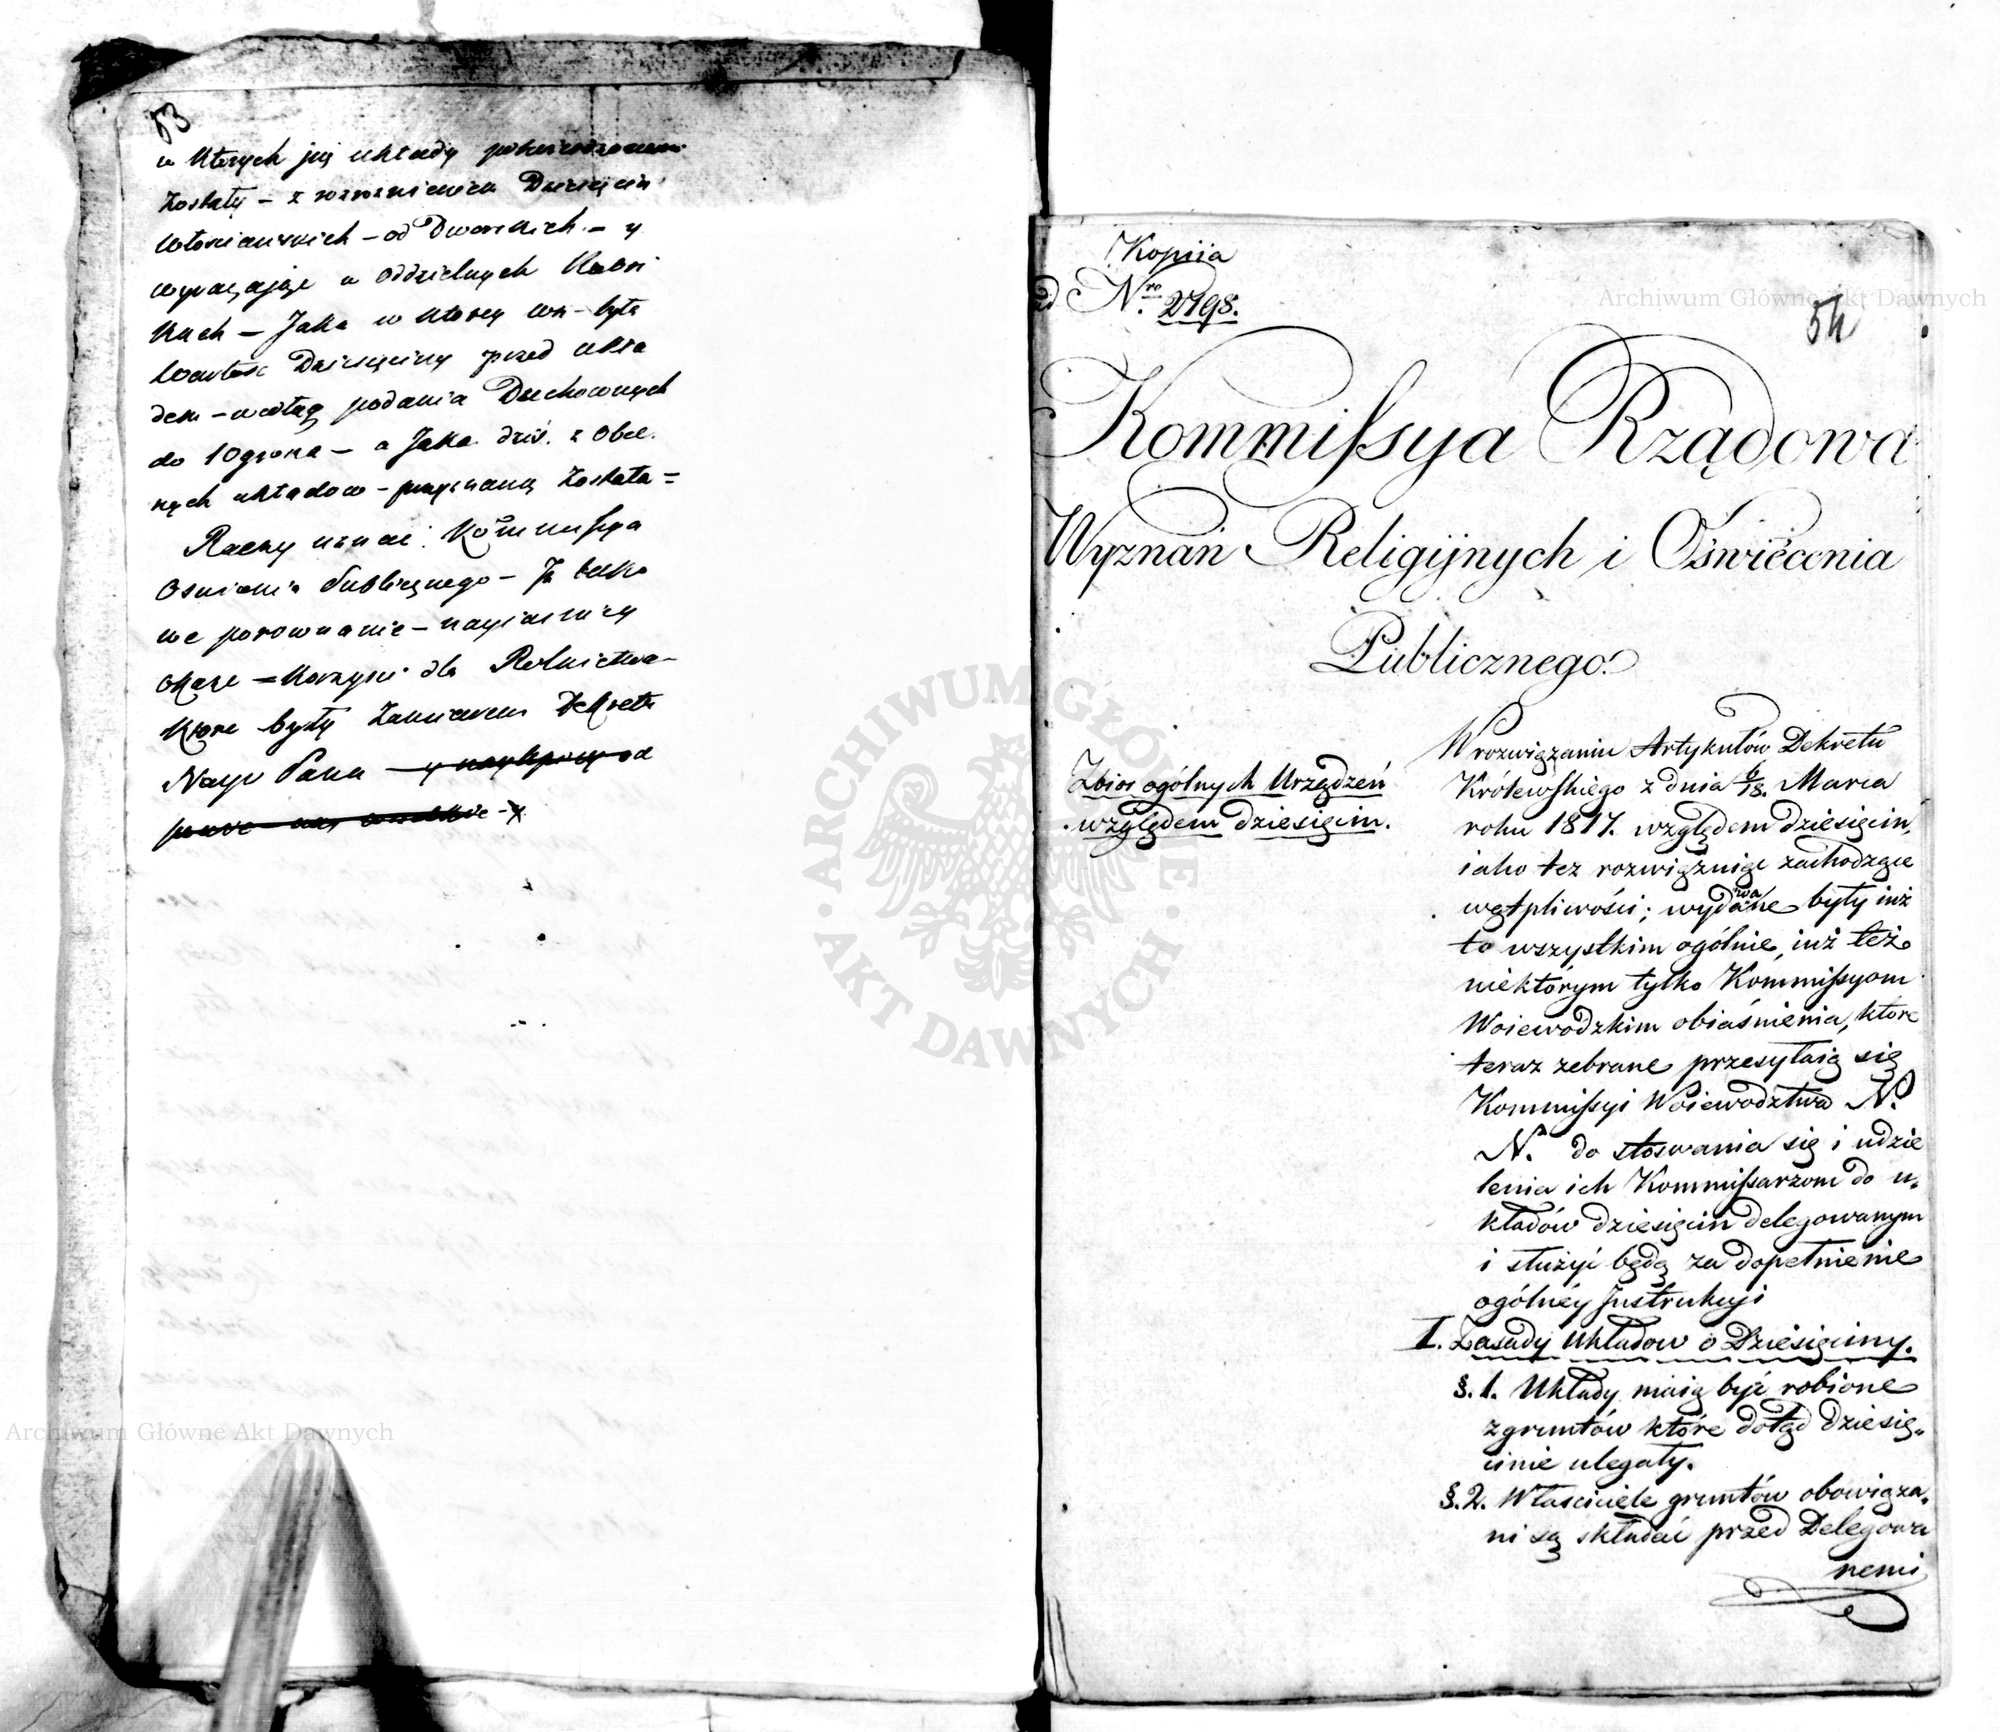 53
w których jey układy potwierdzonemi
zostały – z roznieniem Dziesięcin
włościańskich – od Dworskich – y
wyrażając w oddzielnych Rubri
kach – Jaka w którey wsi – była
Wartość Dziesięciny przed ukła
dem – według podania Duchownych
do 10 grona – a Jaka dziś z obec
nych układow – przyznaną została =
Raczy uznać Kommissya
Oświecenia Publicznego – Iż tako
we porownanie – nayiaśniey
okaże – korzyści dla Rolnictwa –
które były zamiarem Dekretu
Nayi Pana – y
Kopiia
ad Nro 2798.
54
Kommissya Rządowa
Wyznań Religijnych i Oświécenia
Publicznego.
Zbior ogólnych Urządzeń
względem dziesięcin.
W rozwiązaniu Artykułów Dekretu
Królewskiego z dnia 6/18. Marca
roku 1817. względem dziesięcin,
iako tez rozwiązuiąc zachodzące
wątpliwości; wydawane były iuż
to wszystkim ogólnie, iuż też
niektórym tylko Kommissyom
Woiewódzkim obiaśnienia, które
teraz zebrane przesyłaią się
Kommissyi Woiewództwa N.
N. do stosowania się i udzie
lenia ich Kommissarzom do u-
kładów dziesięcin delegowanym
i służyć będą za dopełnienie
ogólnéy Instrukcyi
I. Zasady Układow o Dziesięciny.
§. 1. Układy maią być robione
z gruntów które dotąd dziesię-
cinie ulegały.
§. 2. Właściciele gruntów obowiąza-
ni są składać przed Delegowa
nemi
ARCHIWUM GŁÓWNE
AKT DAWNYCH
Archiwum Główne Akt Dawnych
Archiwum Główne Akt Dawnych